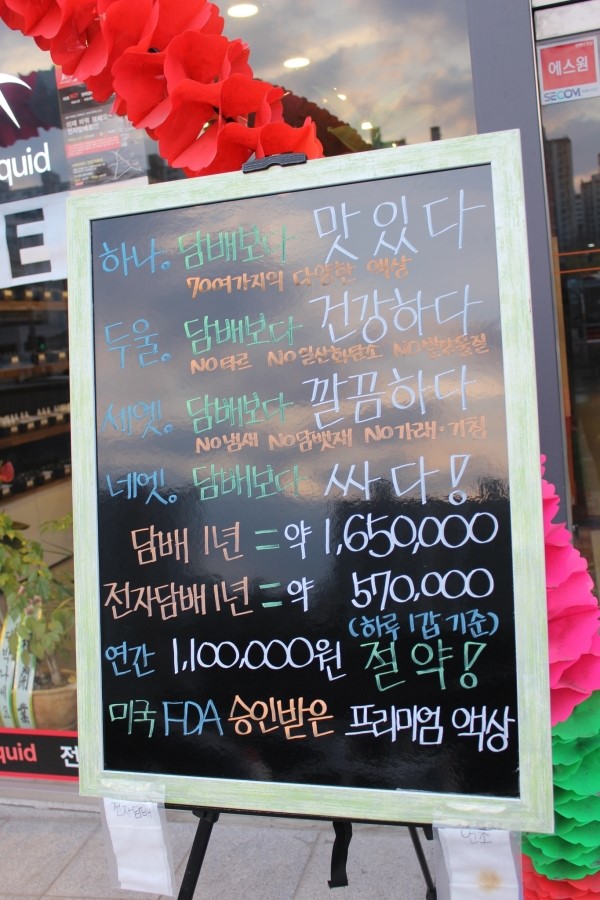 에스원
SECOM
quid
E
하나. 담배보다 맛있다
70여가지의 다양한 액상
두울. 담배보다 건강하다
NO타르 NO일산화탄소 NO발암물질
세엣. 담배보다 깔끔하다
NO냄새 NO담뱃재 NO가래·기침
네엣. 담배보다 싸다!
담배 1년 = 약 1,650,000
전자담배 1년 = 약 570,000
(하루 1갑 기준)
연간 1,100,000원 절약!
미국 FDA 승인받은 프리미엄 액상
quid 전
전자담배
연초